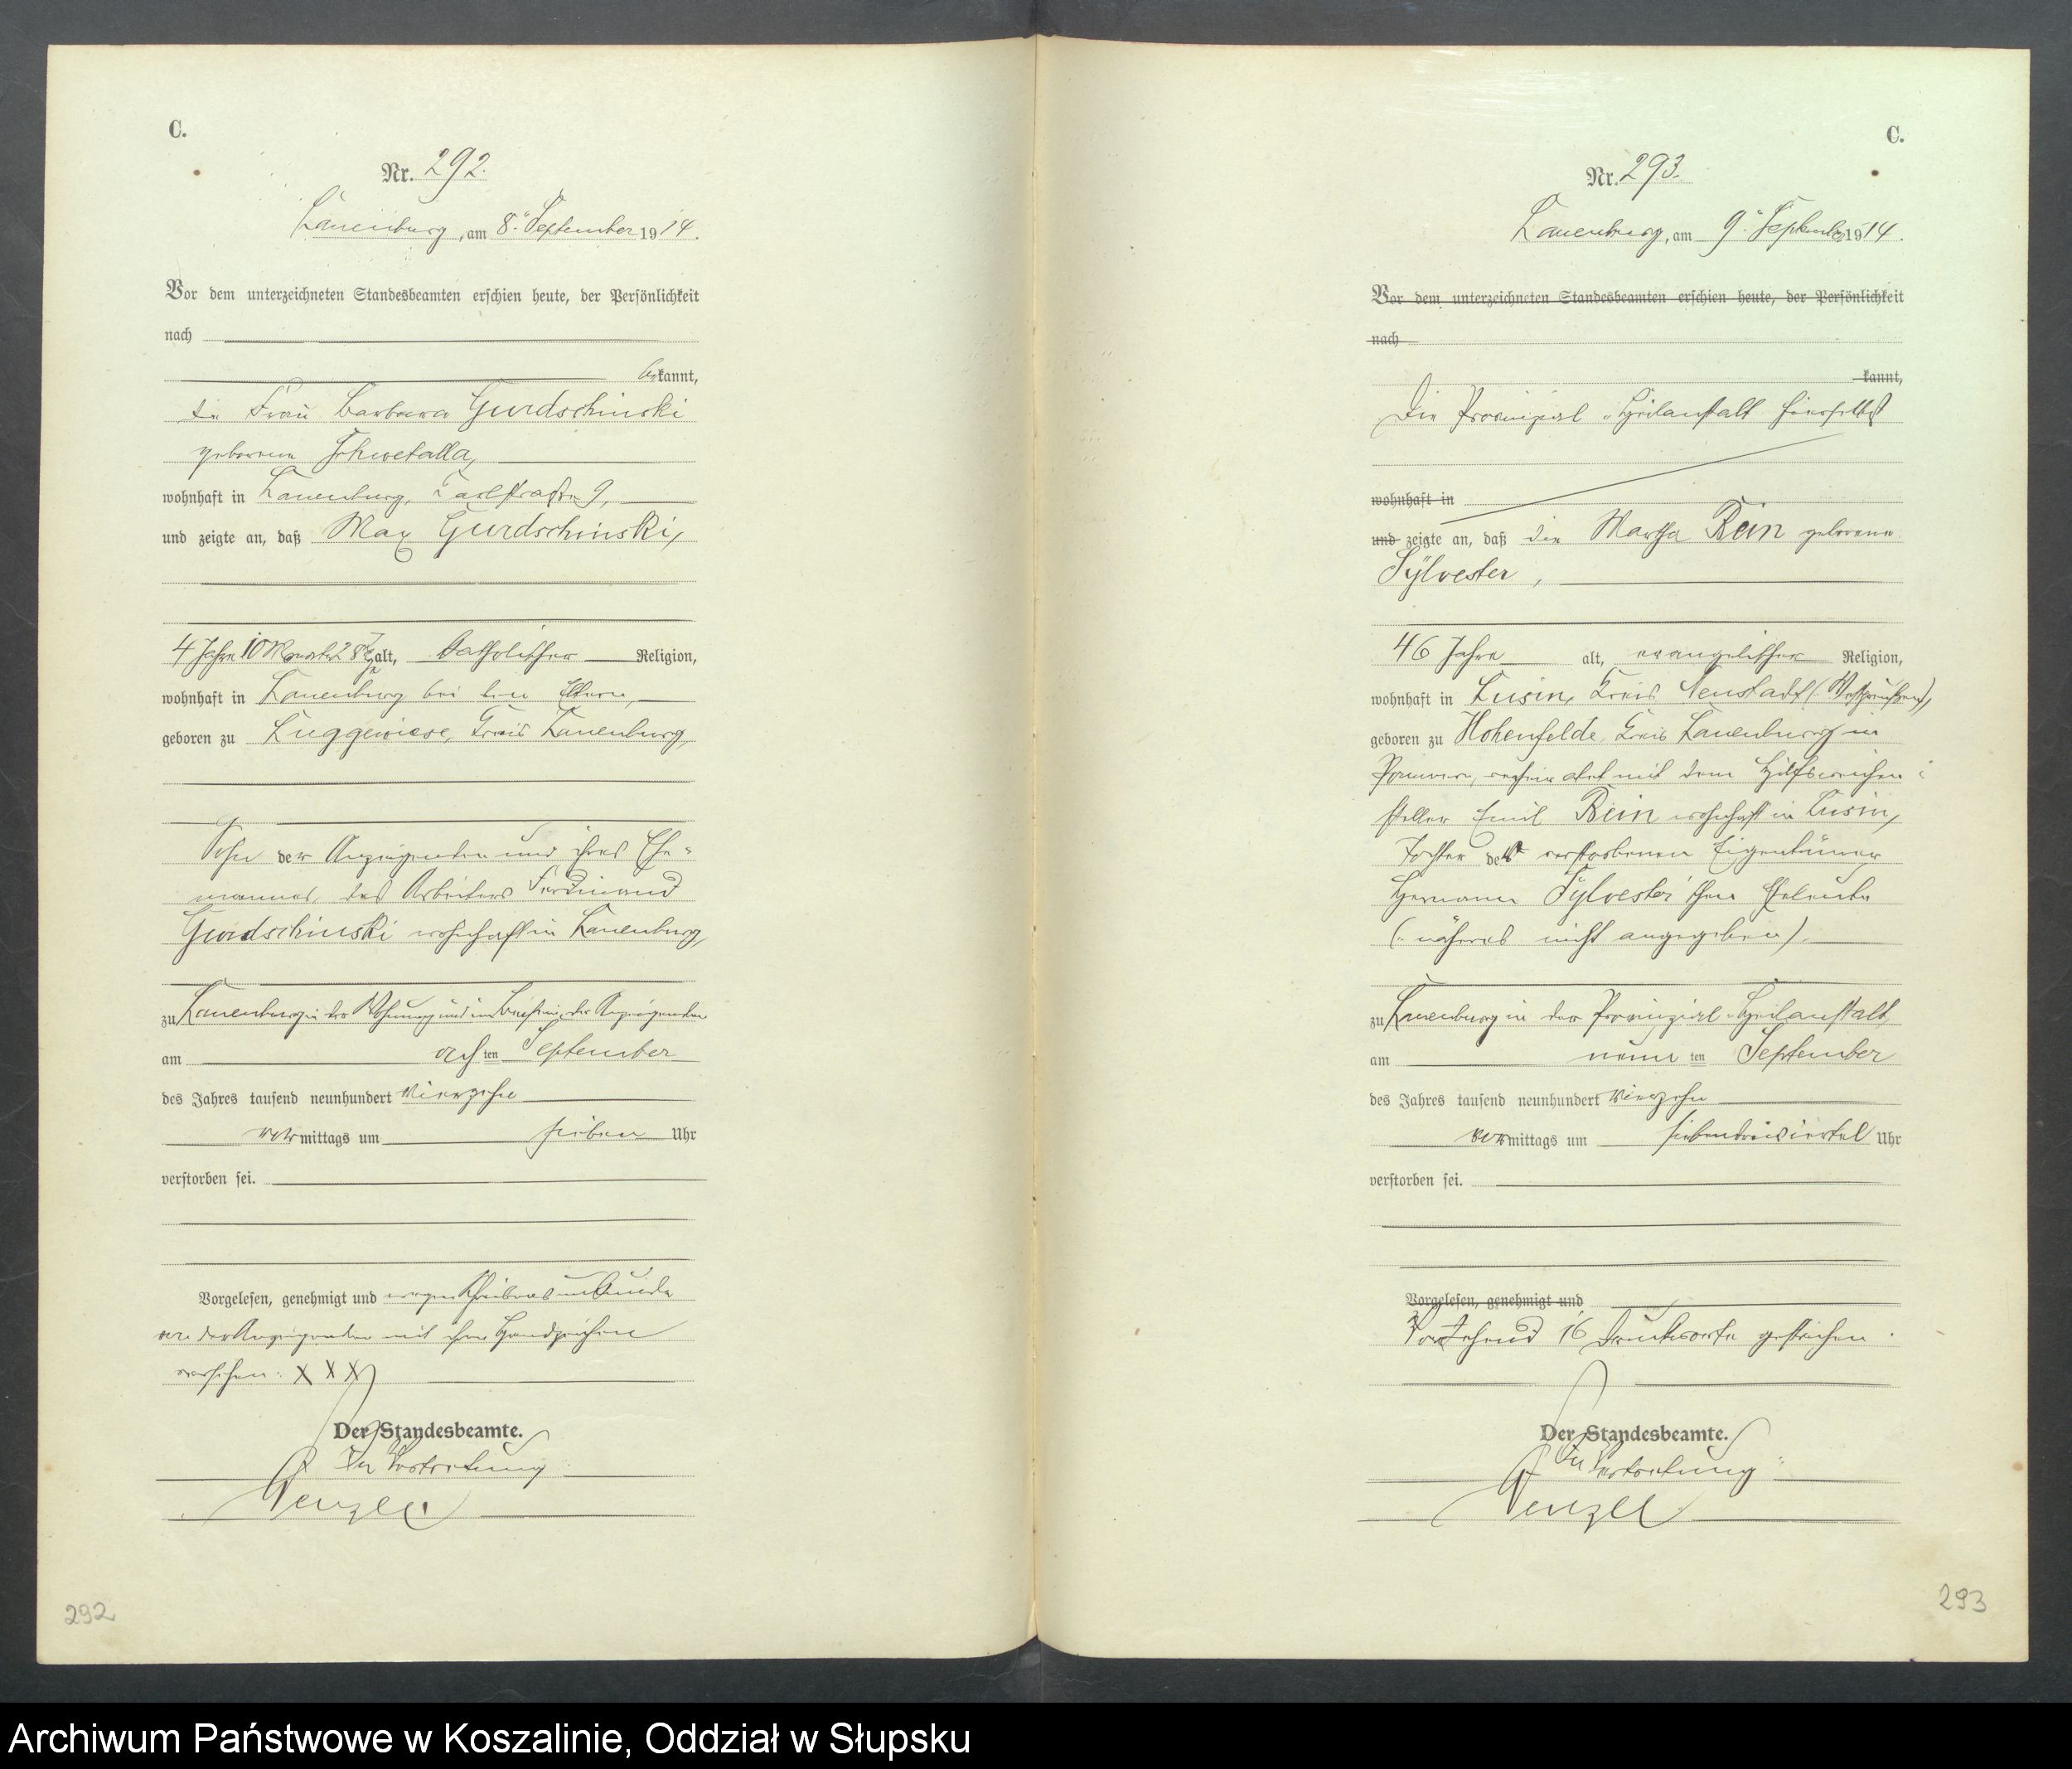 C.
Nr. 292.
Lauenburg, am 8. September 1914.
Vor dem unterzeichneten Standesbeamten erschien heute, der Persönlichkeit
nach
bekannt,
die Frau Barbara Gurdschinski
geborene Schwetalla,
wohnhaft in Lauenburg, Karlstraße 9,
und zeigte an, daß Max Gurdschinski,
4 Jahre 10 Monate 28 Tage alt, katholischer Religion,
wohnhaft in Lauenburg bei den Eltern,
geboren zu Luggewiese, Kreis Lauenburg,
Sohn der Anzeigenden und ihres Ehe-
mannes, des Arbeiters Ferdinand
Gurdschinski wohnhaft in Lauenburg,
zu Lauenburg in der Wohnung und im Beisein der Anzeigenden
am achten September
des Jahres tausend neunhundert vierzehn
vormittags um sieben Uhr
verstorben sei.
Vorgelesen, genehmigt und wegen Schreibensunkunde
von der Anzeigenden mit ihrem Handzeichen
versehen: XXX
Der Standesbeamte.
In Vertretung
Wenzel
292
C.
Nr. 293.
Lauenburg, am 9. September 1914.
Vor dem unterzeichneten Standesbeamten erschien heute, der Persönlichkeit
nach
kannt,
Die Provinzial-Heilanstalt hierselbst
wohnhaft in
und zeigte an, daß die Martha Bein geborene
Sylvester,
46 Jahre alt, evangelischer Religion,
wohnhaft in Lusin, Kreis Neustadt (Westpreußen),
geboren zu Hohenfelde, Kreis Lauenburg in
Pommern, verheiratet mit dem Hilfsweichen-
steller Emil Bein wohnhaft in Lusin,
Tochter der verstorbenen Eigentümer
Hermann Sylvester'schen Eheleute
(näheres nicht angegeben),
zu Lauenburg in der Provinzial-Heilanstalt,
am neunten September
des Jahres tausend neunhundert vierzehn
vormittags um siebendreiviertel Uhr
verstorben sei.
Vorgelesen, genehmigt und
Vorstehend 16 Druckworte gestrichen.
Der Standesbeamte.
In Vertretung
Wenzel
293
Archiwum Państwowe w Koszalinie, Oddział w Słupsku